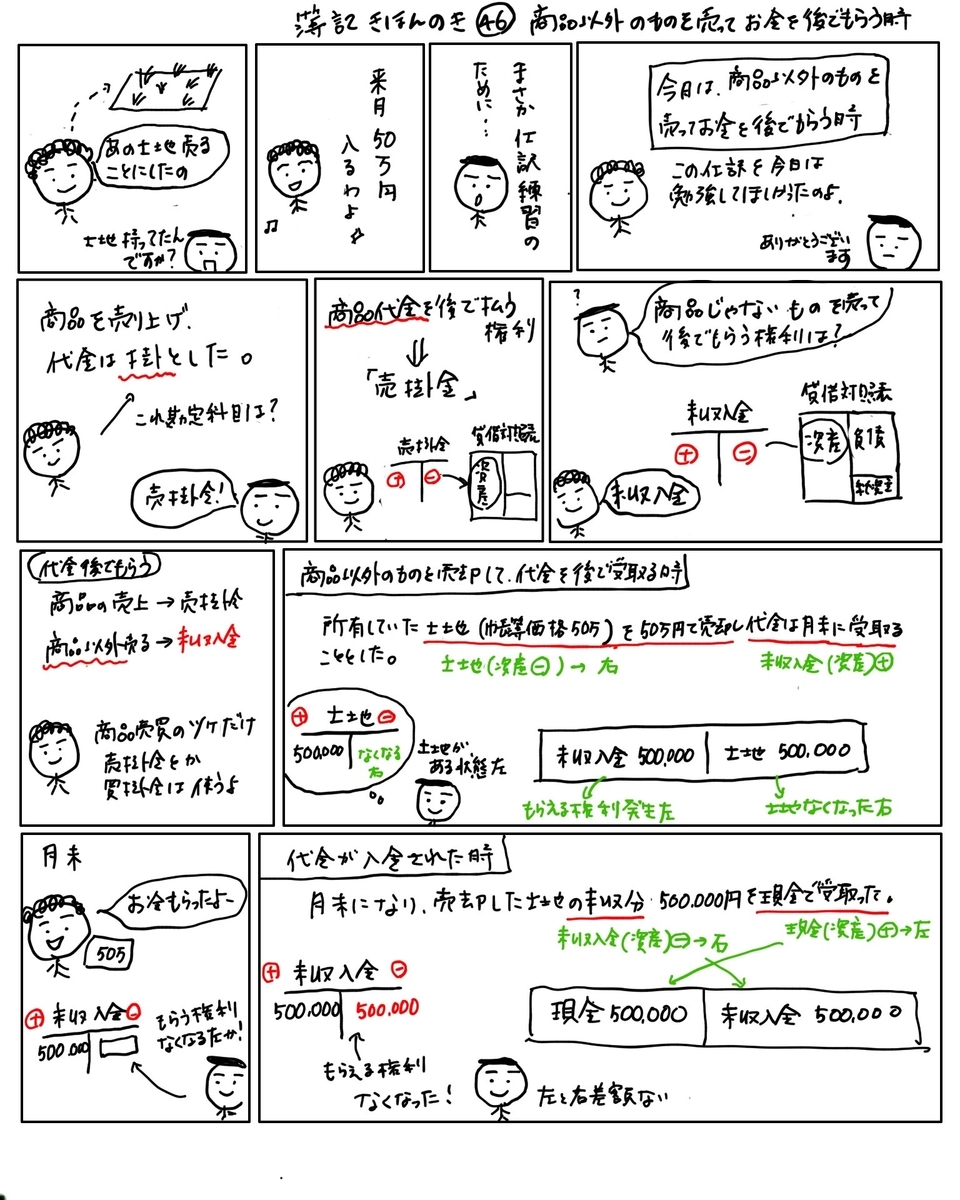 簿記きほんのき㊻ 商品以外のものを売ってお金を後でもらう時
あの土地売る
ことにしたの
土地持ってたん
ですか?
来月50万円
入るわよ
まさか仕訳練習の
ために…
今日は、商品以外のものを
売ってお金を後でもらう時
この仕訳を今日は
勉強してほしかったのよ。
ありがとうござい
ます
商品を売り上げ、
代金は掛とした。
これ勘定科目は?
売掛金!
商品代金を後で払う
権利
⇓
「売掛金」
売掛金
⊕ ⊖
貸借対照表
資産
?
商品じゃないものを売って
後でもらう権利は?
未収入金
⊕ ⊖
貸借対照表
資産 負債
純資産
未収入金
代金後でもらう
商品の売上→売掛金
商品以外売る→未収入金
商品売買のツケだけ
売掛金とか
買掛金は使うよ
商品以外のものを売却して、代金を後で受取る時
所有していた土地(帳簿価格50万)を50万円で売却し代金は月末に受取る
こととした。
土地(資産⊖)→右
未収入金(資産)⊕
⊕ 土地 ⊖
500,000 なくなる
右
土地が
ある状態左
未収入金 500,000 土地 500,000
もらえる権利発生左
土地なくなった右
月末
お金もらったよー
50万
⊕ 未収入金 ⊖
500,000
もらう権利
なくなるたか!
代金が入金された時
月末になり、売却した土地の未収分500,000円を現金で受取った。
未収入金(資産)⊖→右
現金(資産)⊕→左
⊕ 未収入金 ⊖
500,000 500,000
もらえる権利
なくなった!
現金 500,000 未収入金 500,000
左と右差額ない